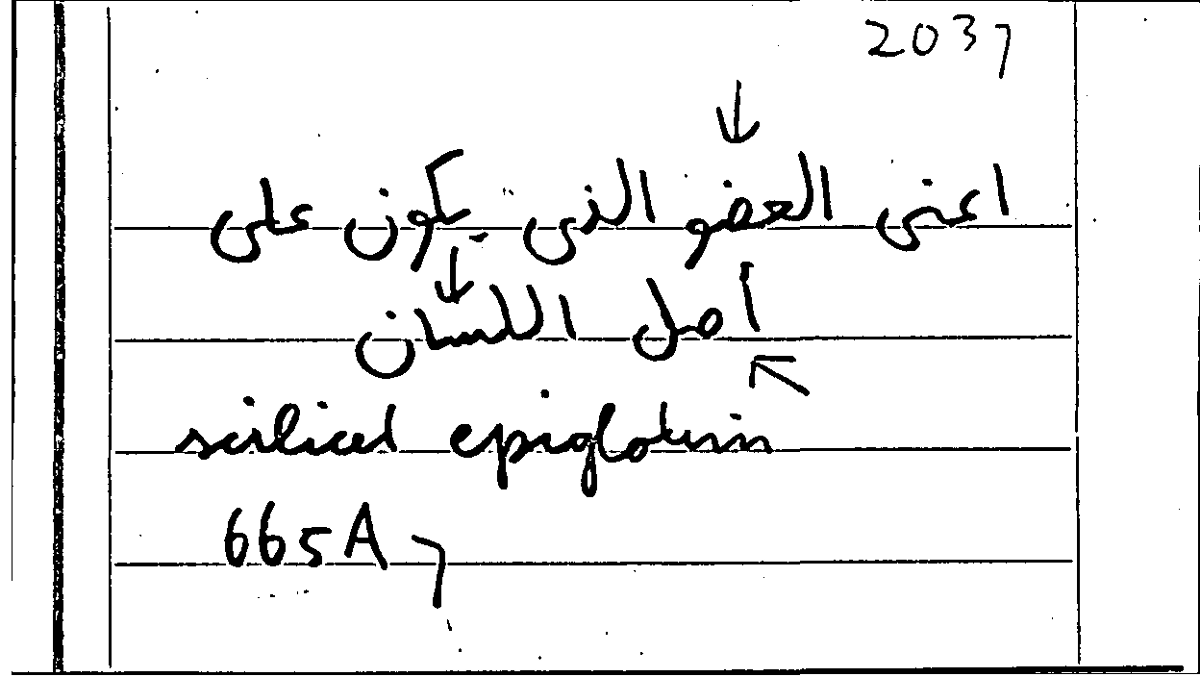 2037
اعنى العضو الذى يكون على
أصل اللسان
scilicet epiglotim
665A7